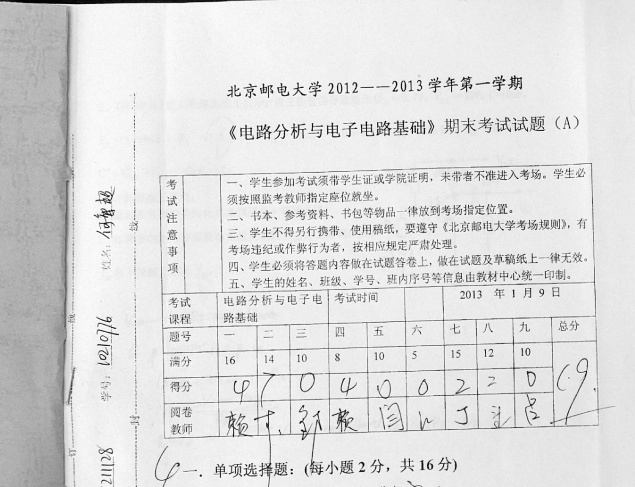 北京邮电大学2012——2013学年第一学期
《电路分析与电子电路基础》期末考试试题（A）
考试注意事项
一、学生参加考试须带学生证或学院证明，未带者不准进入考场。学生必
须按照监考教师指定座位就坐。
二、书本、参考资料、书包等物品一律放到考场指定位置。
三、学生不得另行携带、使用稿纸，要遵守《北京邮电大学考场规则》，有
考场违纪或作弊行为者，按相应规定严肃处理。
四、学生必须将答题内容做在试题答卷上，做在试题及草稿纸上一律无效。
五、学生的姓名、班级、学号、班内序号等信息由教材中心统一印制。
考试课程 电路分析与电子电路基础 考试时间 2013 年 1 月 9 日
题号 一 二 三 四 五 六 七 八 九 总分
满分 16 14 10 8 10 5 15 12 10
得分 4 7 0 4 0 0 2 2 0
阅卷教师
4 一．单项选择题：（每小题2分，共16分）
姓名：
学号：
线
线
封
订